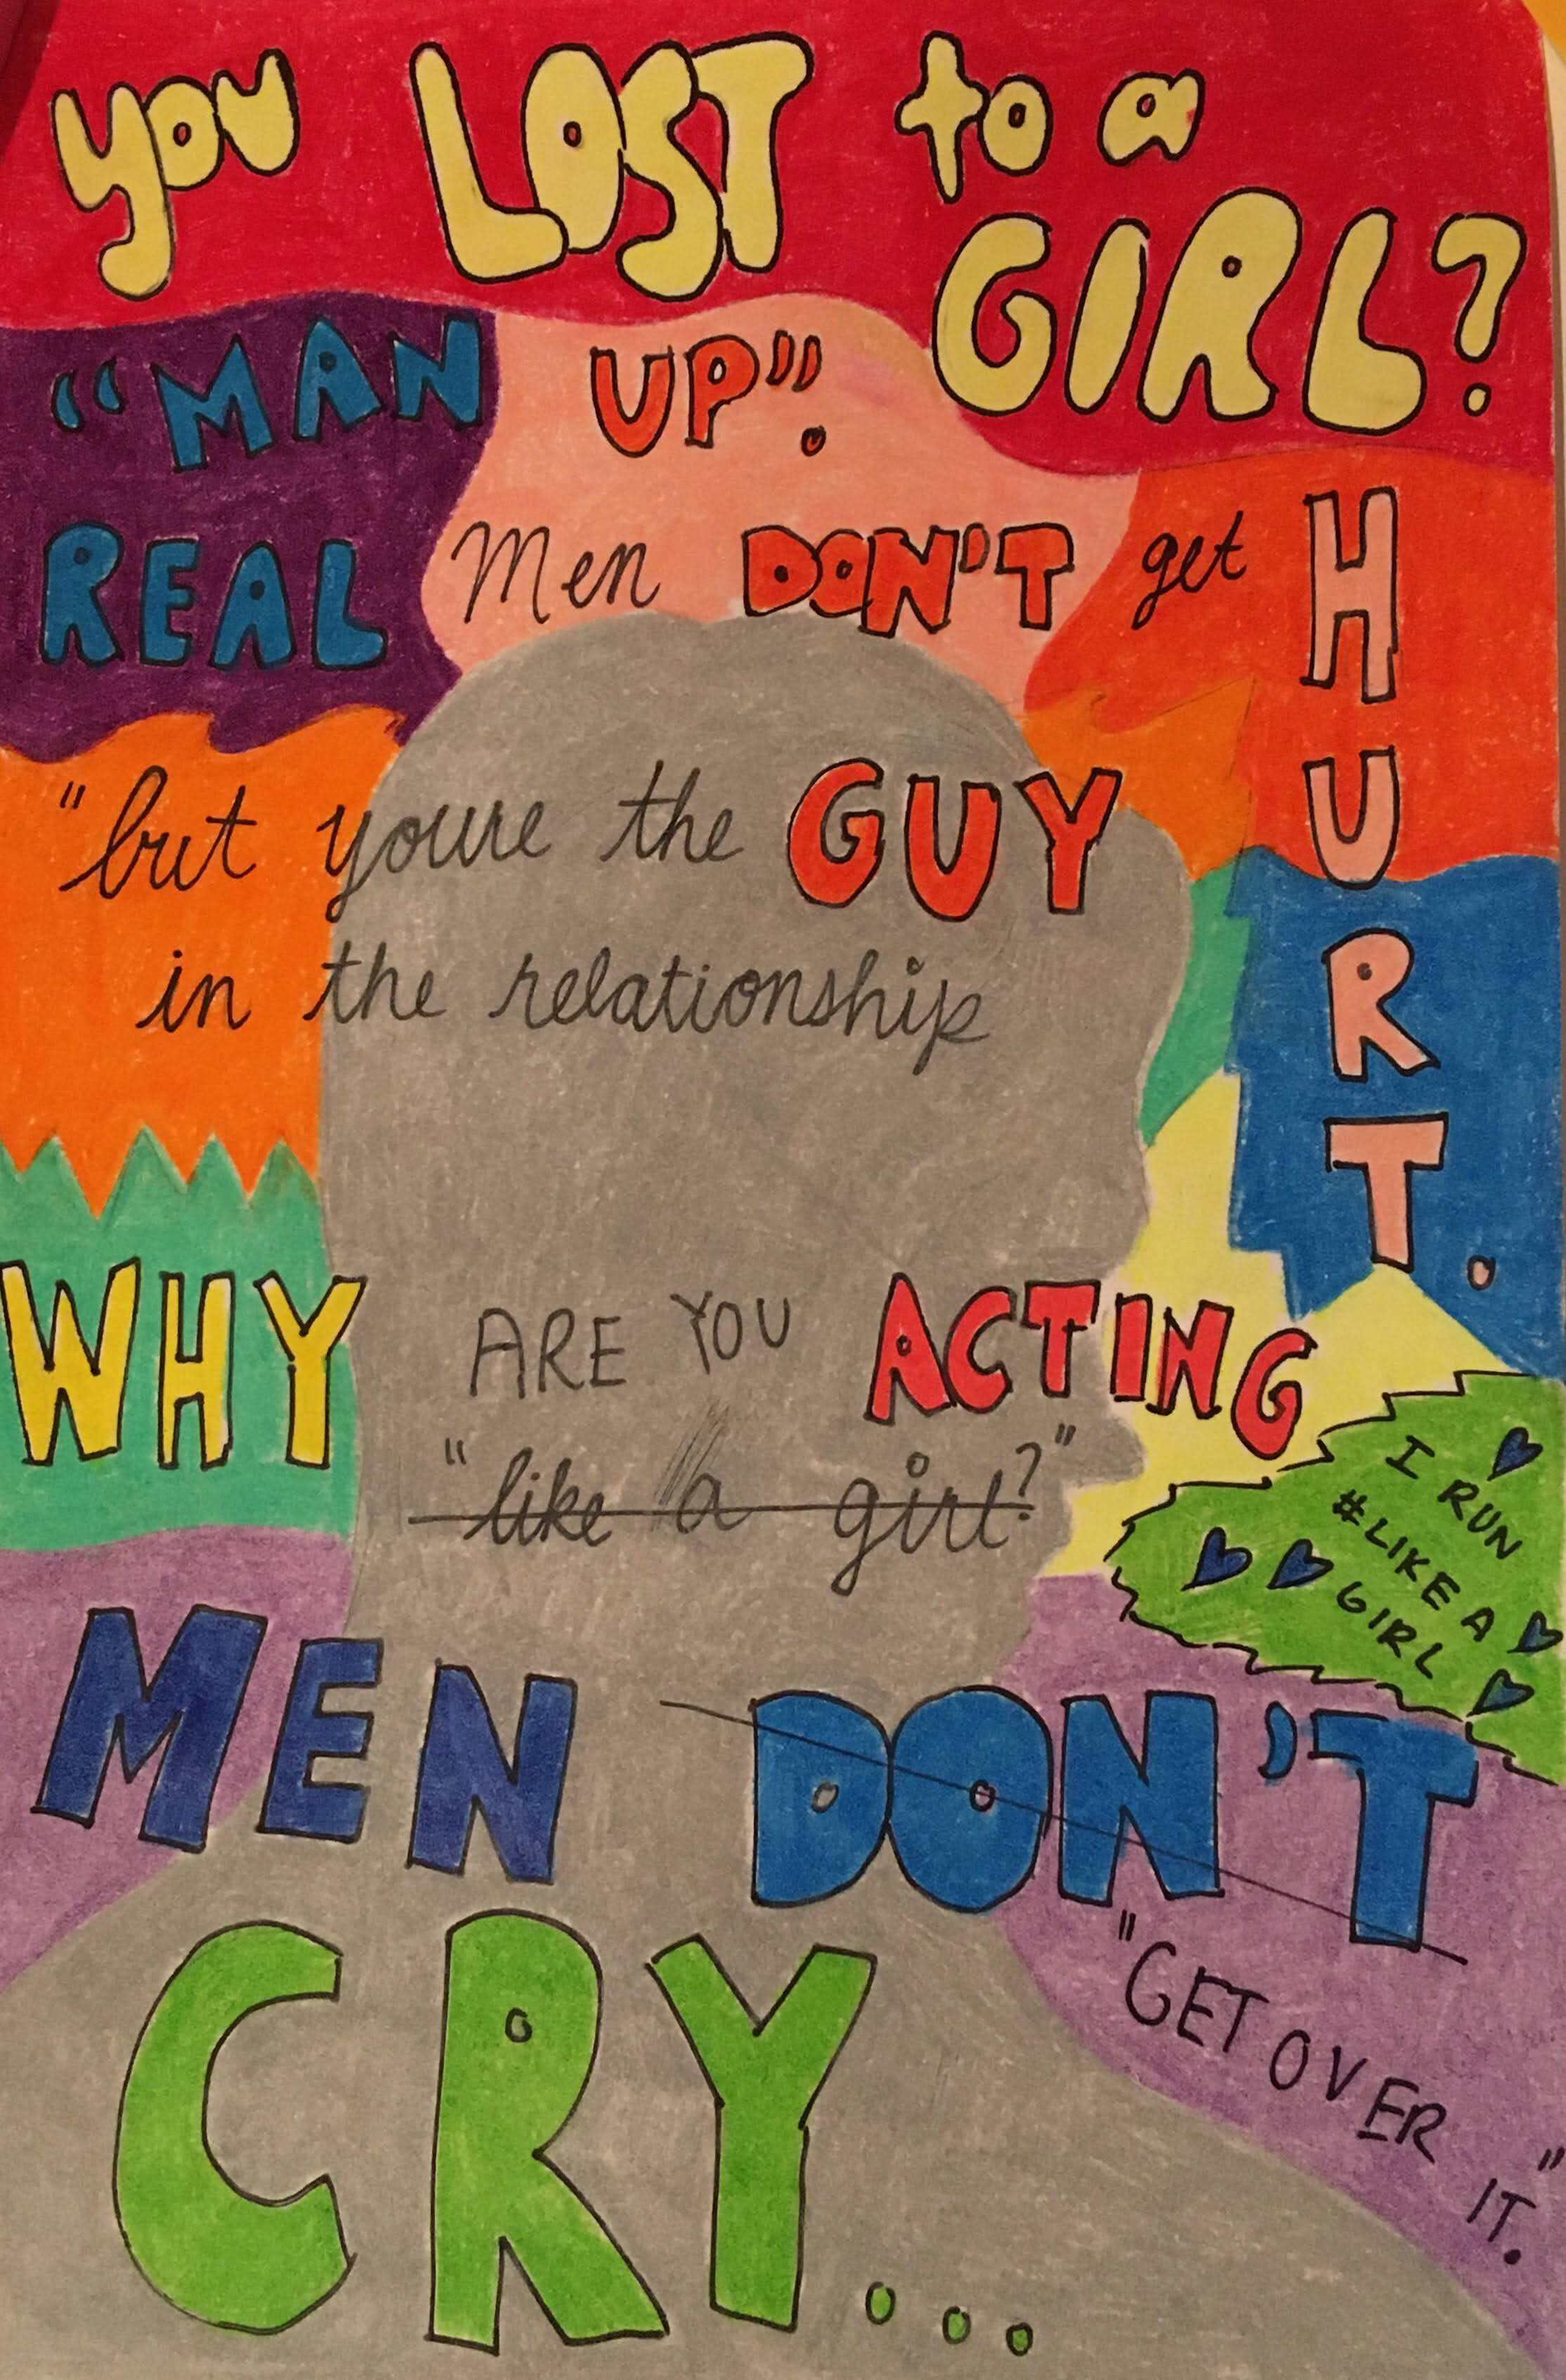 you LOST to a
GIRL?
"MAN UP".
REAL Men DON'T get
HURT.
"but youre the GUY
in the relationship
WHY ARE YOU ACTING
"like a girl?"
I RUN
#LIKE A
GIRL
MEN DON'T
CRY...
"GET OVER IT."